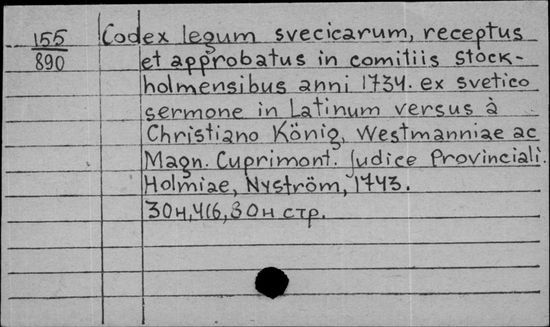 155
890
Codex legum svecicarum, receptus
et approbatus in comitiis stock-
holmensibus anni 1734. ex svetico
sermone in Latinum versus à
Christiano König, Westmanniae ac
Magn. Cuprimont. judice Provinciali.
Holmiae, Nyström, 1743.
30н, 416, 30н стр.